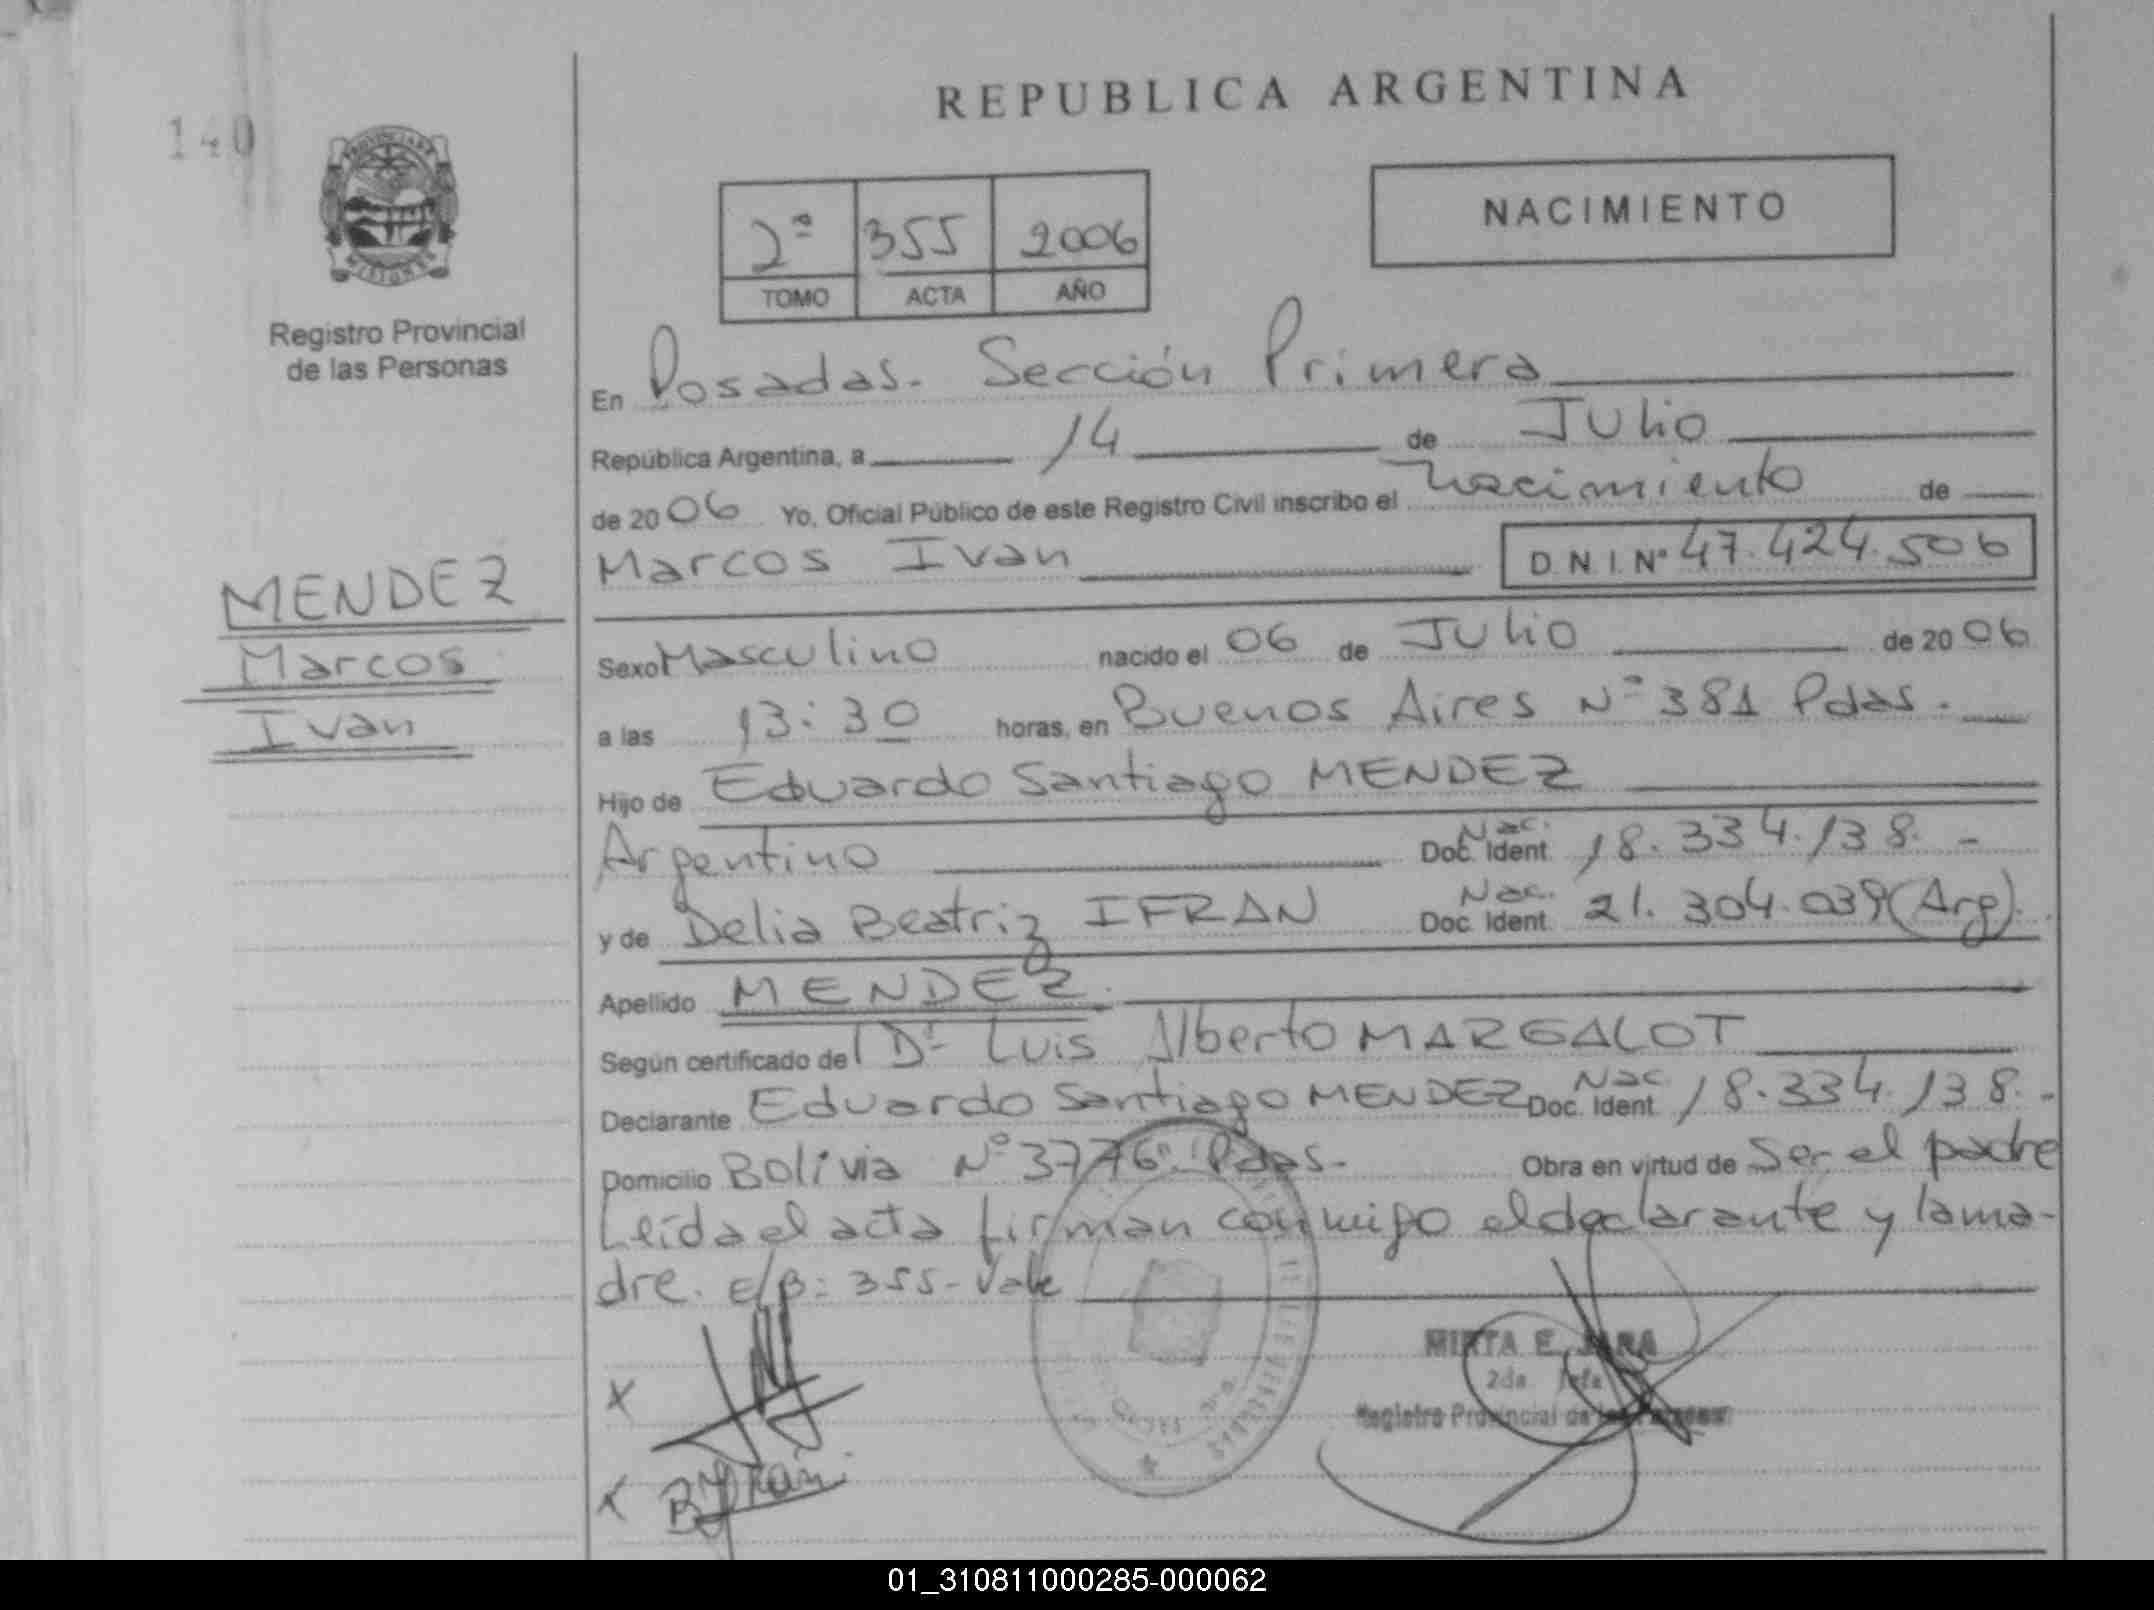 REPUBLICA ARGENTINA
140
PROVINCIA DE
MISIONES
Registro Provincial
de las Personas
2ª 355 2006
TOMO ACTA AÑO
NACIMIENTO
En Posadas. Sección Primera
República Argentina, a 14 de Julio
de 2006 Yo, Oficial Público de este Registro Civil inscribo el nacimiento de
Marcos Ivan D.N.I. Nº 47.424.506
MENDEZ
Marcos
Ivan
Sexo Masculino nacido el 06 de Julio de 2006
a las 13:30 horas, en Buenos Aires Nº 381 Pdas.
Hijo de Eduardo Santiago MENDEZ
Argentino Nac. Doc. Ident. 18.334.138.-
y de Delia Beatriz IFRAN Nac. Doc. Ident. 21.304.039 (Arg).
Apellido MENDEZ.
Según certificado de Dr. Luis Alberto MARGALOT
Declarante Eduardo Santiago MENDEZ Nac. Doc. Ident. 18.334.138.-
Domicilio Bolivia Nº 3776. Pdas.- Obra en virtud de Ser el padre
Leída el acta firman conmigo el declarante y la ma-
dre. e/R: 355- Vale
MIRTA E. JARA
2da Jefa
Registro Provincial de las Personas
X
X B Ifran
01_310811000285-000062